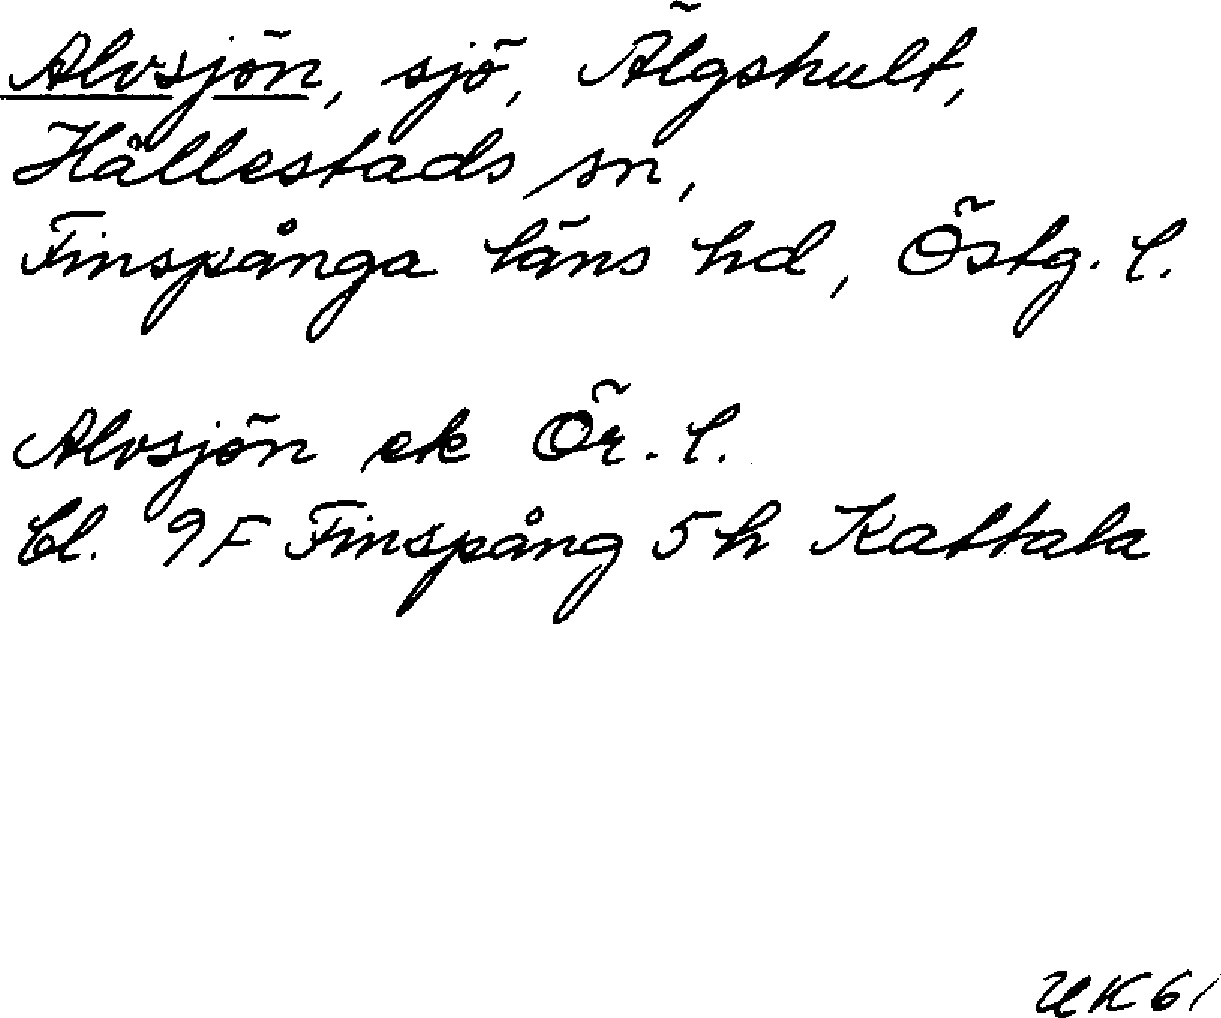 Alvsjön, sjö, Älgshult,
Hällestads sn,
Finspånga läns hd, Östg. l.
Alvsjön ek Ör. l.
bl. 9F Finspång 5h Kattala
UK61